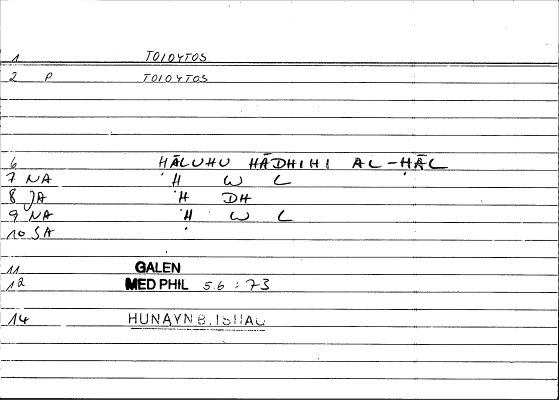 1 TOIOYTOS
2 P TOIOYTOS
6 ḤĀLUHU HĀDHIHI AL-ḤĀL
7 NA Ḥ W L
8 JA H DH
9 NA Ḥ W L
10 SA
11 GALEN
12 MED PHIL 5.6 : 73
14 HUNAYN B. ISHAQ